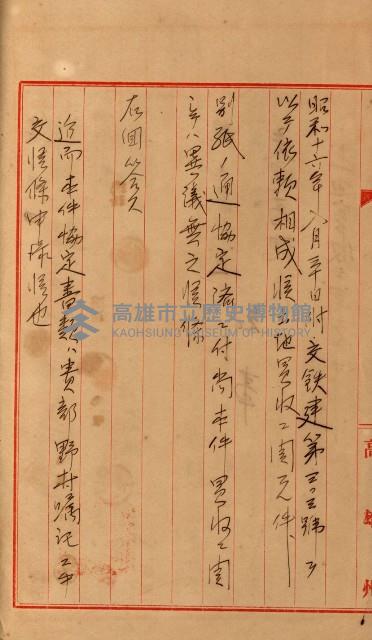 昭和十六年八月三十日附交鉄建第三三號ヲ
以テ依頼相成候土地買收ニ関スル件、
別紙ノ通協定済ニ付尚本件買收ニ関
シテハ異議無之候條
右回答ス
追而本件協定書類ハ貴部野村嘱託ニ
交候條申添候也
高雄市立歷史博物館
KAOHSIUNG MUSEUM OF HISTORY
高雄州